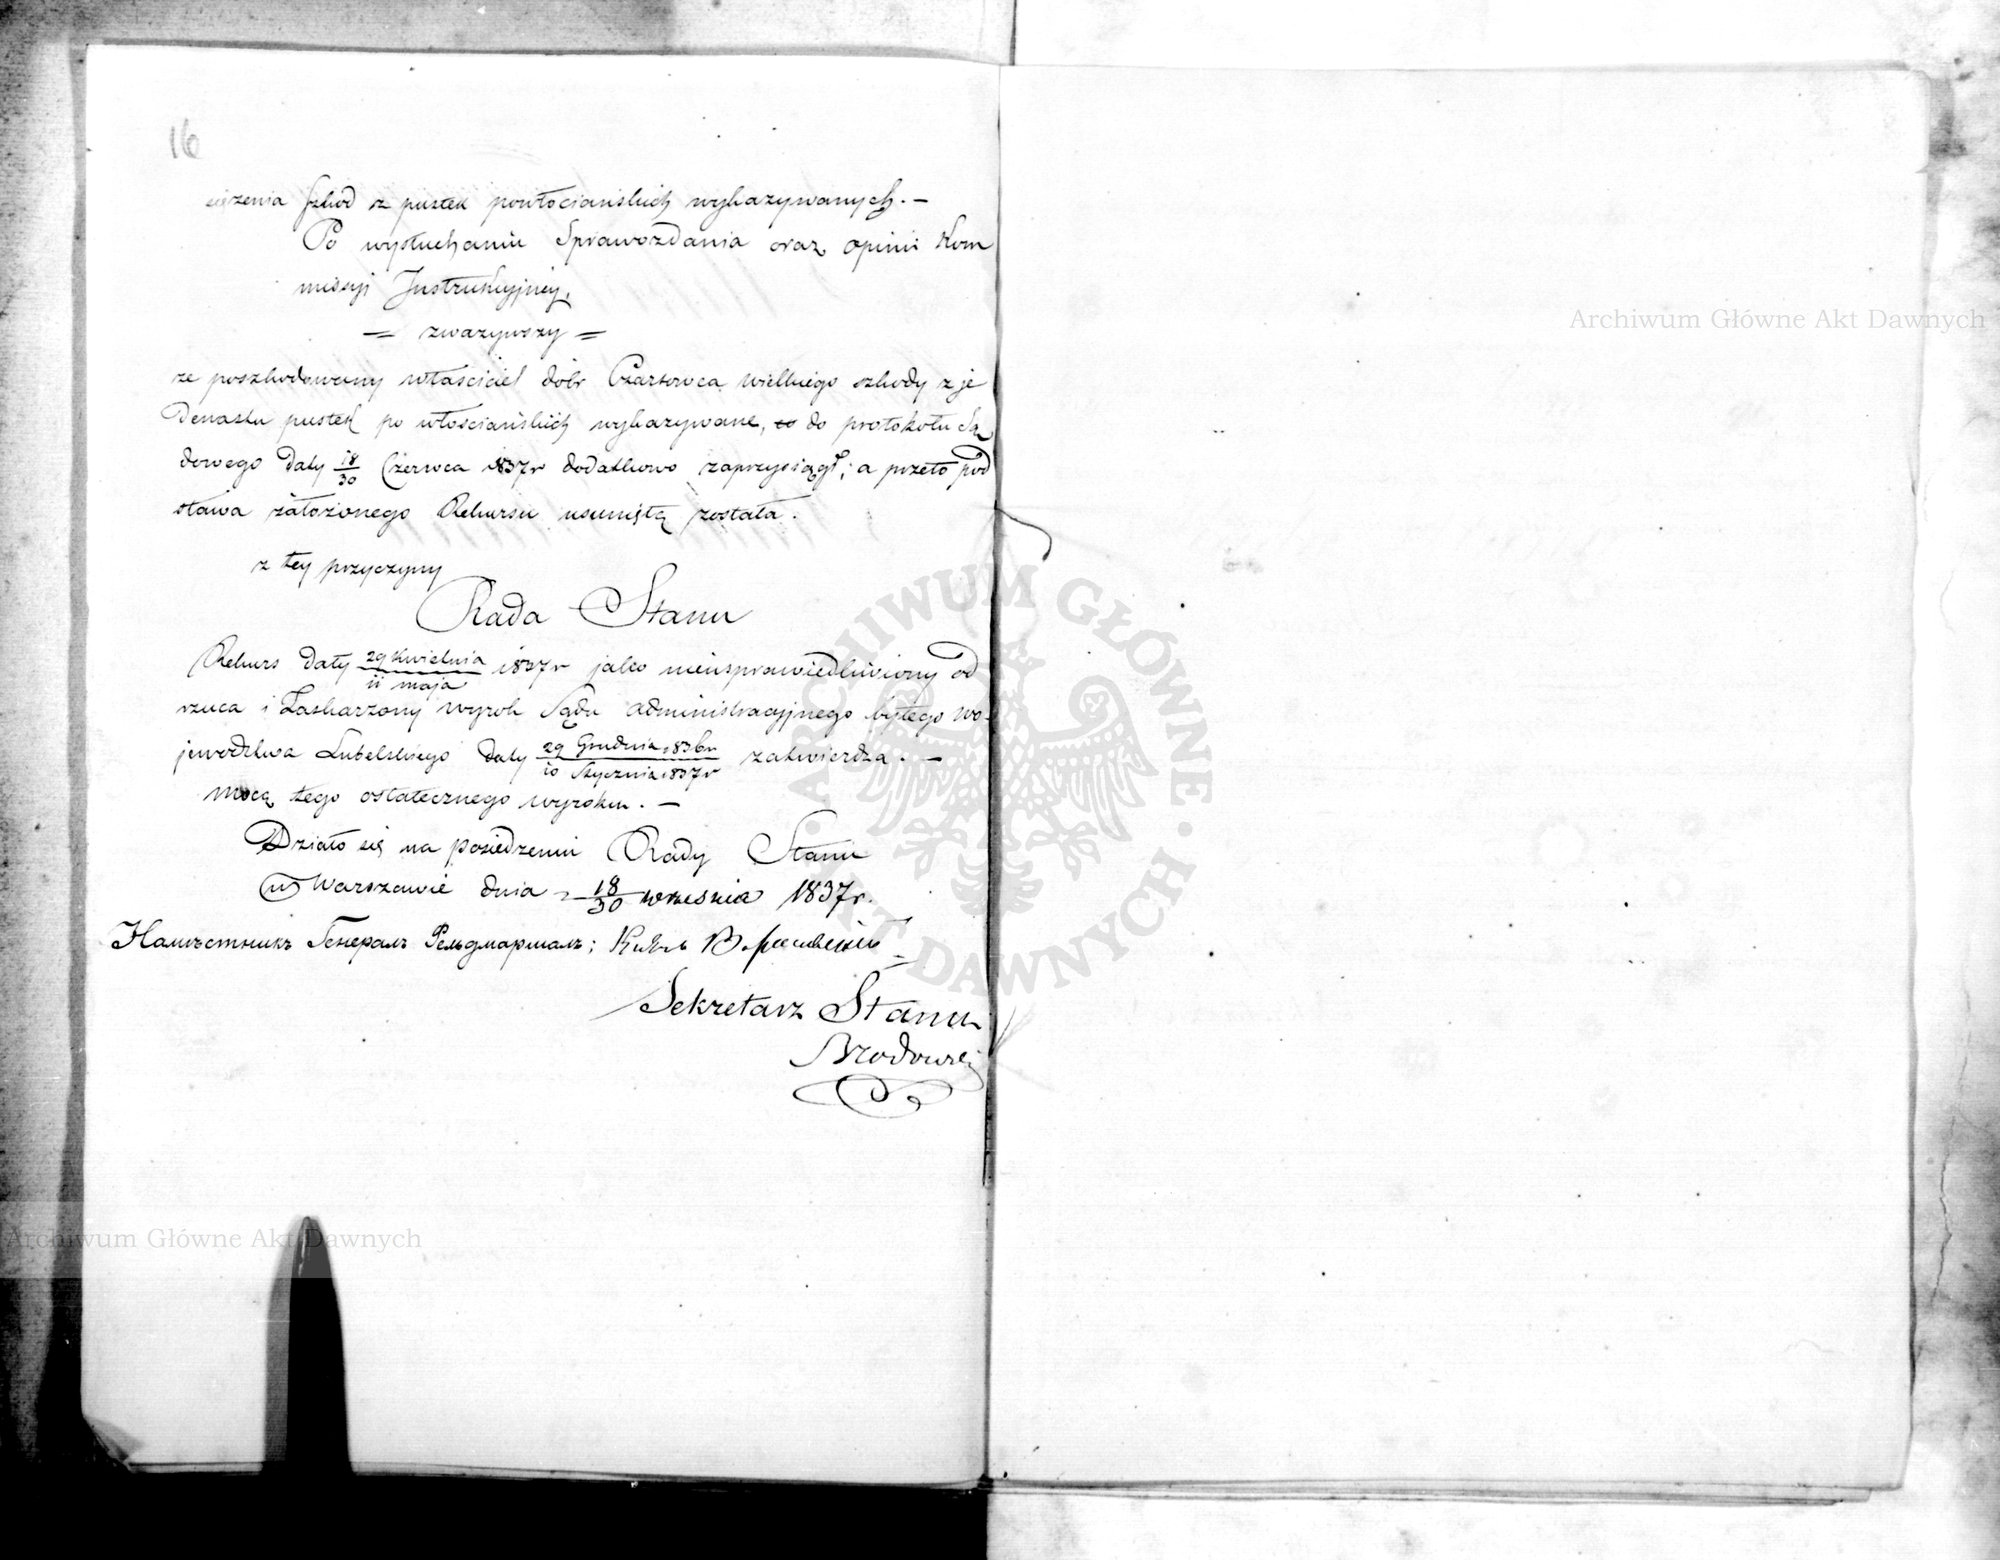 16
szkod z pustek powłościańskich wykazywanych. —
Po wysłuchaniu Sprawozdania oraz opinii Kom
missyi Instrukcyjney,
= zwazywszy =
ze poszkodowany właściciel dobr Czartowca wielkiego szkody z je
denastu pustek po włościańskich wykazywane, do protokołu Są
dowego daty 18/30 Czerwca 1837r dodatkowo zaprzysiągł; a przeto pod
stawa założonego Rekursu usuniętą została.
z tey przyczyny
Rada Stanu
Rekurs daty 29 Kwietnia/11 maja 1837r jako nieusprawiedliwiony od
rzuca i Zaskarzony wyrok Sądu administracyjnego byłego wo-
jewodztwa Lubelskiego daty 29 Grudnia 1836r/10 Stycznia 1837r zatwierdza. —
mocą tego ostatecznego wyroku. —
Działo się na posiedzeniu Rady Stanu
w Warszawie dnia 18/30 września 1837r.
Намѣстникъ Генералъ Фельдмаршалъ;
Sekretarz Stanu
Archiwum Główne Akt Dawnych
Archiwum Główne Akt Dawnych
ARCHIWUM GŁÓWNE · AKT DAWNYCH ·